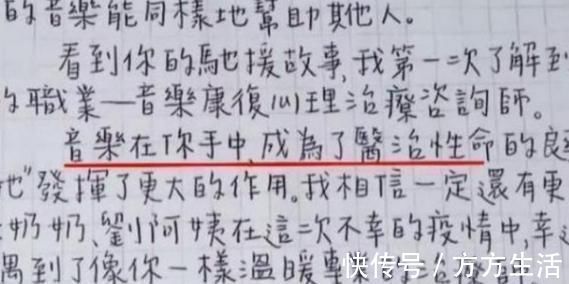 的音樂能同樣地幫助其他人。
看到你的馳援故事,我第一次了解到
職業—音樂康復心理治療咨詢師。
音樂在你手中,成為了醫治性命的良
他"發揮了更大的作用。我相信一定還有更
奶奶、劉阿姨在這二次不幸的疫情中,幸
遇到了像你一樣溫暖專業的
快传号/方方生活